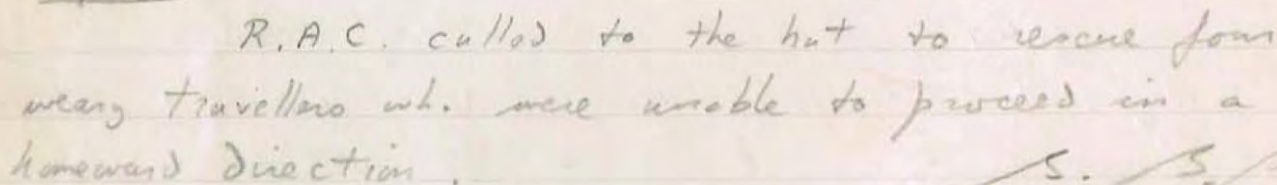 R.A.C. called to the hut to rescue four
weary travellers who were unable to proceed in a
homeward direction. S. S.